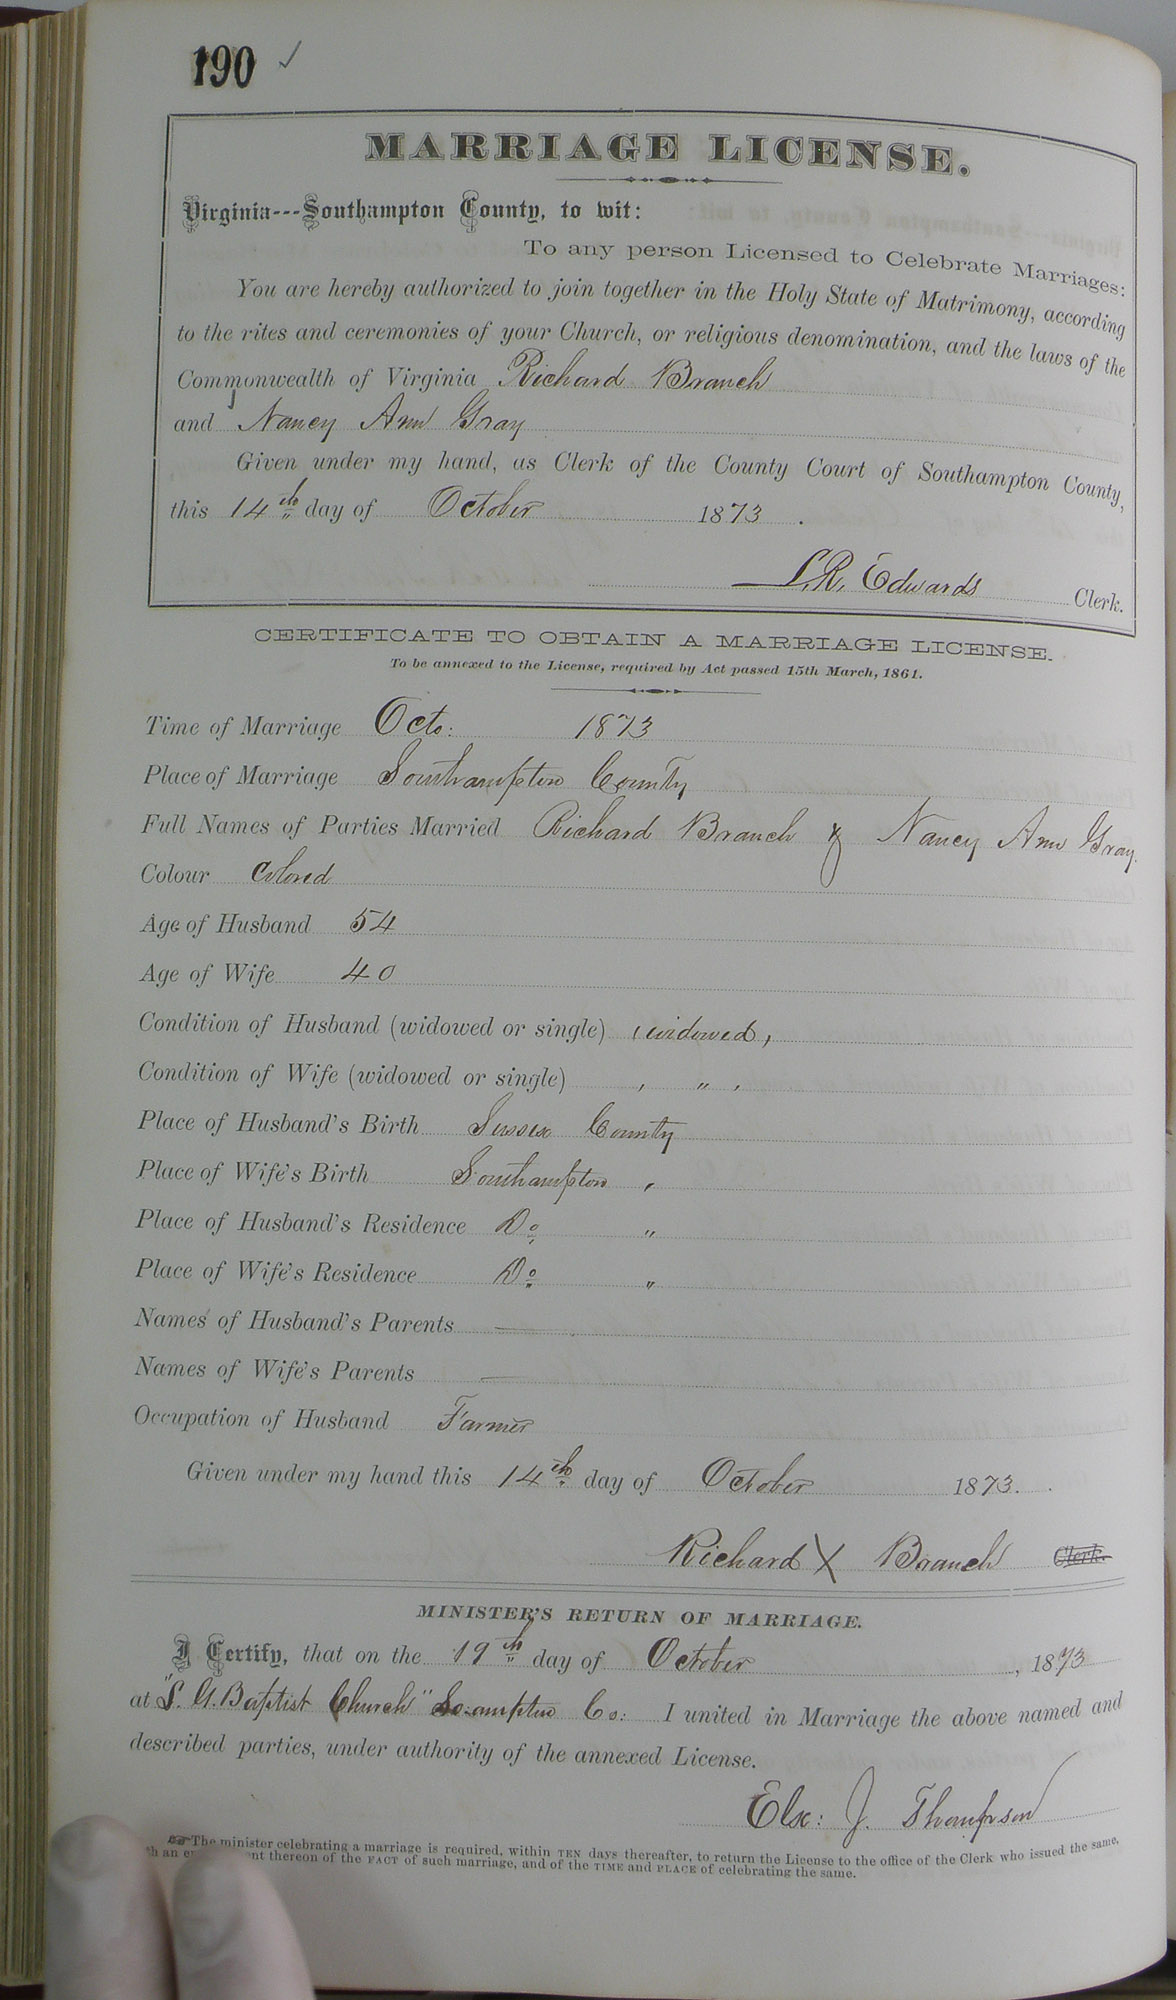 190 ✓
MARRIAGE LICENSE.
Virginia---Southampton County, to wit:
To any person Licensed to Celebrate Marriages:
You are hereby authorized to join together in the Holy State of Matrimony, according
to the rites and ceremonies of your Church, or religious denomination, and the laws of the
Commonwealth of Virginia Richard Branch
and Nancy Ann Gray
Given under my hand, as Clerk of the County Court of Southampton County,
this 14th day of October 1873.
L.R. Edwards Clerk.
CERTIFICATE TO OBTAIN A MARRIAGE LICENSE.
To be annexed to the License, required by Act passed 15th March, 1861.
Time of Marriage Octo: 1873
Place of Marriage Southampton County
Full Names of Parties Married Richard Branch & Nancy Ann Gray.
Colour Colored
Age of Husband 54
Age of Wife 40
Condition of Husband (widowed or single) widowed,
Condition of Wife (widowed or single) , " ,
Place of Husband's Birth Sussex County
Place of Wife's Birth Southampton "
Place of Husband's Residence Do "
Place of Wife's Residence Do "
Names of Husband's Parents —
Names of Wife's Parents —
Occupation of Husband Farmer
Given under my hand this 14th day of October 1873.
Richard X Branch Clerk.
MINISTER'S RETURN OF MARRIAGE.
I Certify, that on the 19th day of October, 1873
at Baptist Church" So-ampton Co: I united in Marriage the above named and
described parties, under authority of the annexed License.
J. Thompson
The minister celebrating a marriage is required, within TEN days thereafter, to return the License to the office of the Clerk who issued the same,
thereon of the FACT of such marriage, and of the TIME and PLACE of celebrating the same.